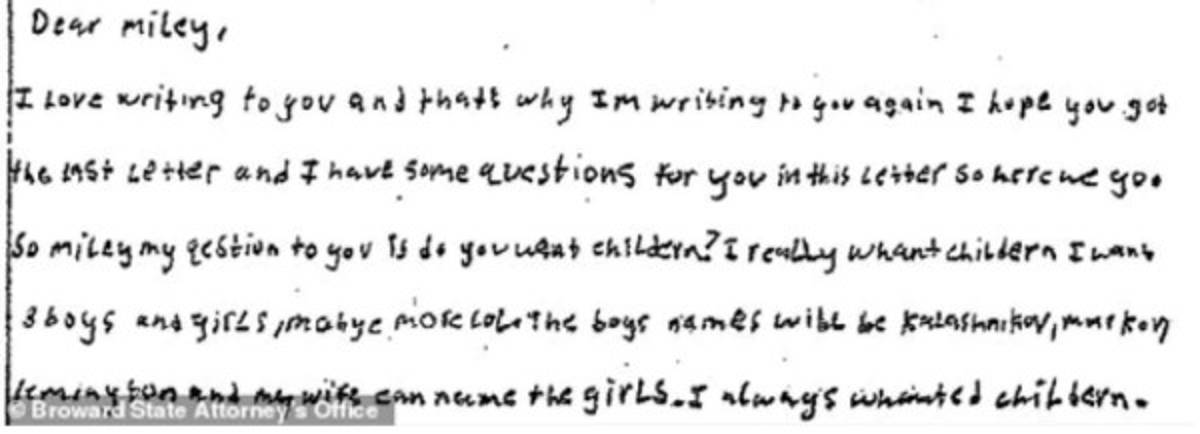 Dear miley,
I Love writing to you and thats why Im writing to you again I hope you got
the last Letter and I have some questions for you in this Letter so here we go.
So miley my qestion to you is do you want childern? I really whant childern I want
3 boys and girls, mabye more lol. The boys names will be Kalashnikov, 
and my wife can name the girLs. I always whanted childern.
© Broward State Attorney's Office